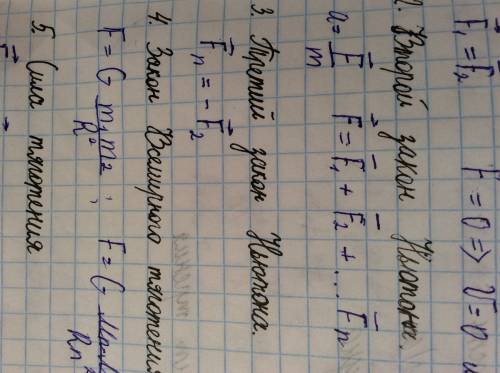 F₁ = F₂ F = 0 ⇒ υ = 0 и
2. Второй закон Ньютона.
a = F/m F = F₁ + F₂ + ... Fn
3. Третий закон Ньютона.
Fn = - F₂
4. Закон Всемирного тяготения
F = G m₁m₂/R² ; F = G
5. Сила тяготения